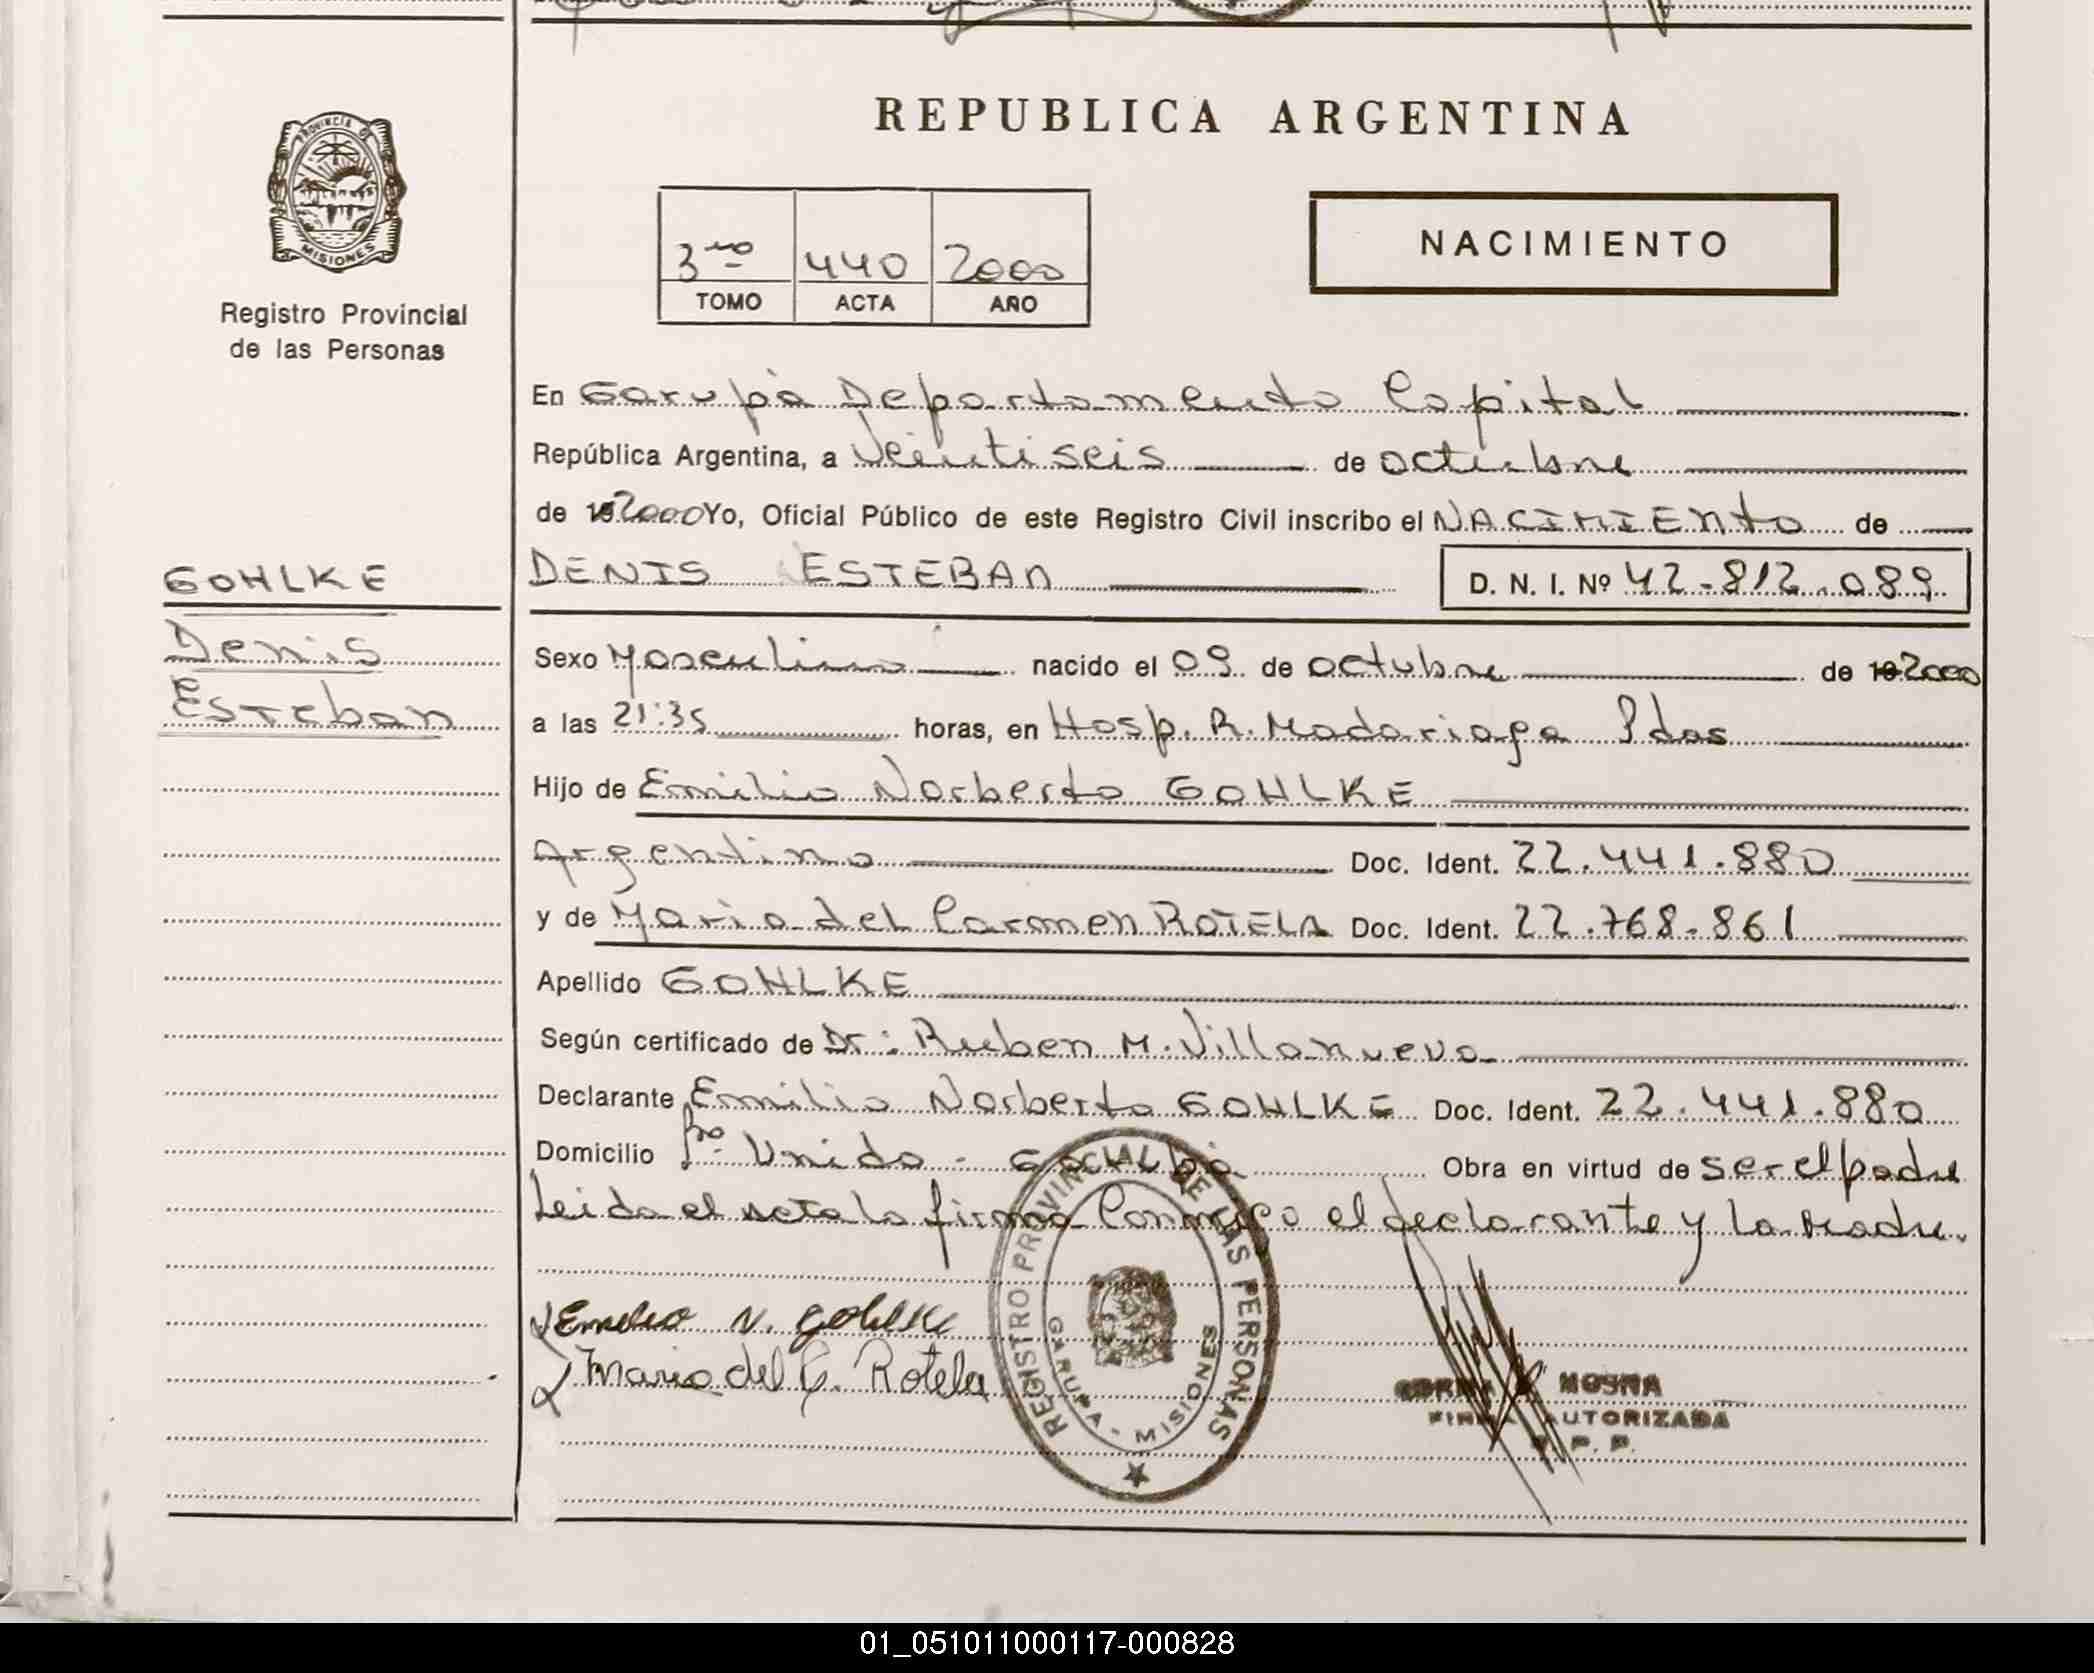 REPUBLICA ARGENTINA
PROVINCIA DE MISIONES
Registro Provincial
de las Personas
3ro 440 2000
TOMO ACTA AÑO
NACIMIENTO
En Garupá Departamento Capital
República Argentina, a Veintiseis de octubre
de 192000 Yo, Oficial Público de este Registro Civil inscribo el NACIMIENTO de
GOHLKE
Denis
Esteban
DENIS ESTEBAN D. N. I. Nº 42-812.089
Sexo Masculino nacido el 09 de octubre de 192000
a las 21:35 horas, en Hosp. R. Madariaga Pdas
Hijo de Emilio Norberto GOHLKE
Argentino Doc. Ident. 22.441.880
y de Maria del Carmen ROTELA Doc. Ident. 22.768.861
Apellido GOHLKE
Según certificado de Dr: Ruben M. Villanueva
Declarante Emilio Norberto GOHLKE Doc. Ident. 22.441.880
Domicilio Bro Unido - Garupá Obra en virtud de ser el padre
Leida el acta la firma conmigo el declarante y la madre.
Emilio N. Gohlke
Maria del C. Rotela
REGISTRO PROVINCIAL DE LAS PERSONAS
GARUPA - MISIONES
MOSNA
FIRMA AUTORIZADA
R. P. P.
01_051011000117-000828